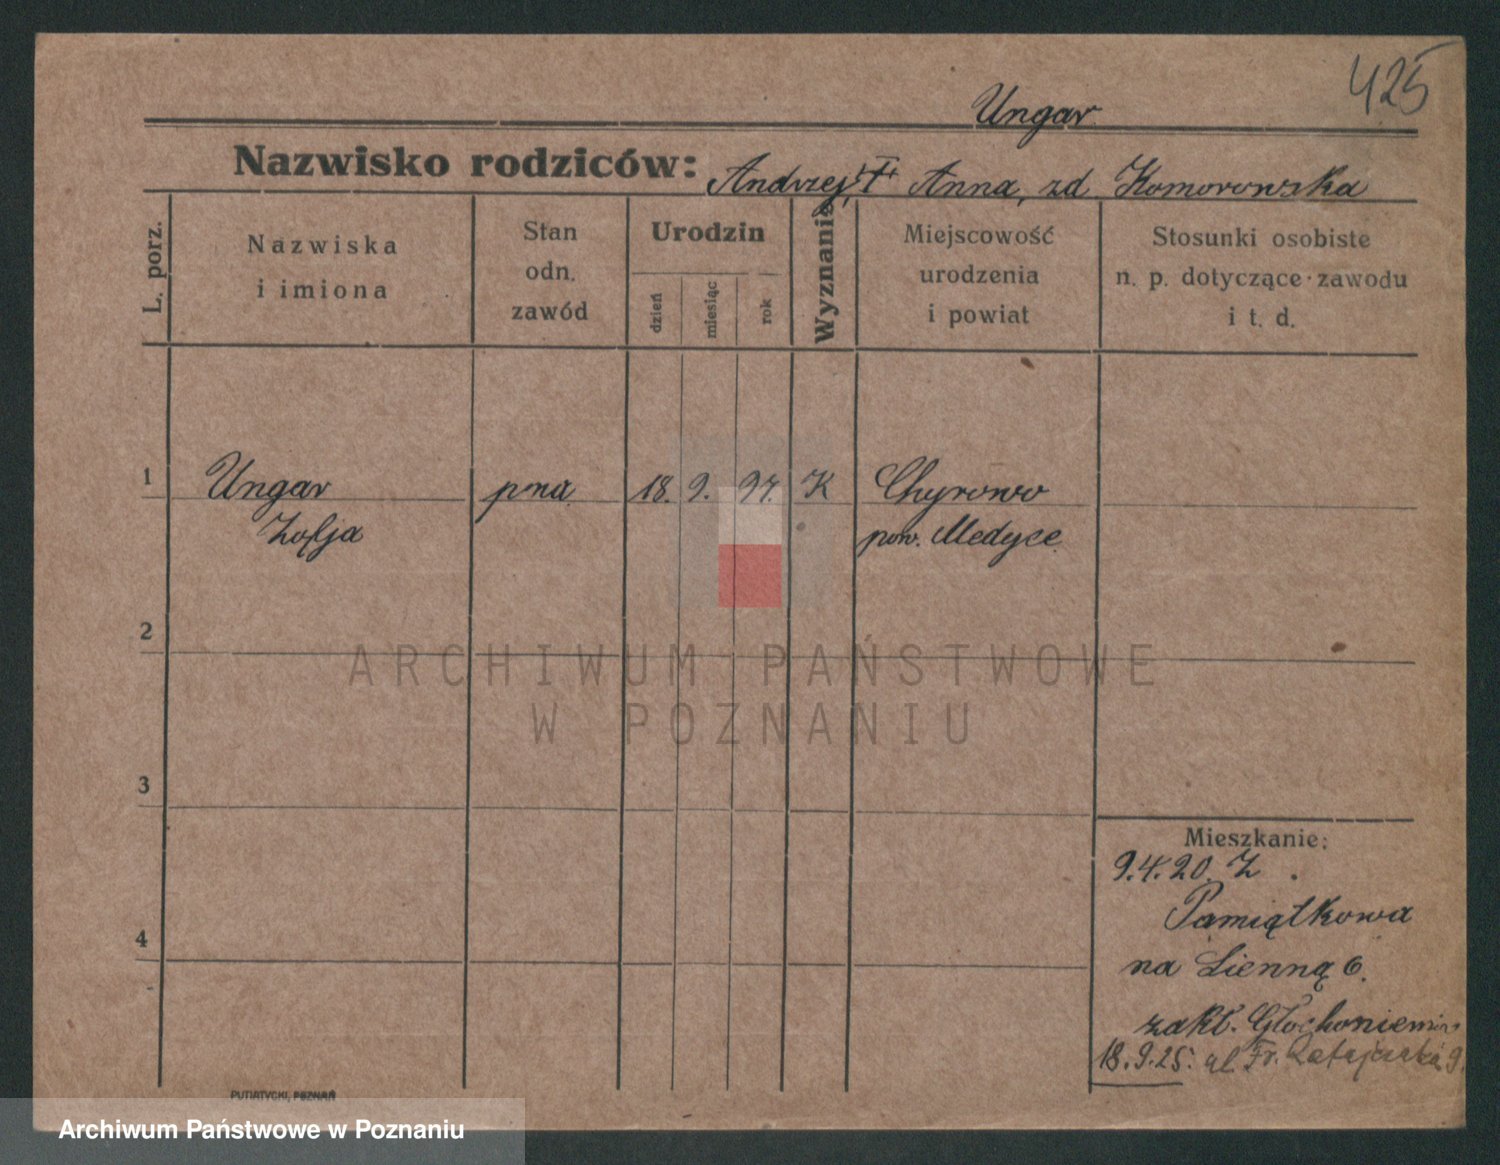 425
Ungar
Nazwisko rodziców: Andrzej, † Anna, zd Komorowska
L. porz.
Nazwiska
i imiona
Stan
odn.
zawód
Urodzin
dzień
miesiąc
rok
Wyznanie
Miejscowość
urodzenia
i powiat
Stosunki osobiste
n. p. dotyczące zawodu
i t. d.
1 Ungar pna 18. 9. 97. K Chyrowo
Zofja pow. Medyce
2
ARCHIWUM PAŃSTWOWE
W POZNANIU
3
Mieszkanie:
9.4.20. Z
Pamiątkowa
4
na Sienną 6.
zakł. Głochoniemin
18.9.25. ul Fr. Ratajczaka 9.
PUTIATYCKI, POZNAŃ
Archiwum Państwowe w Poznaniu